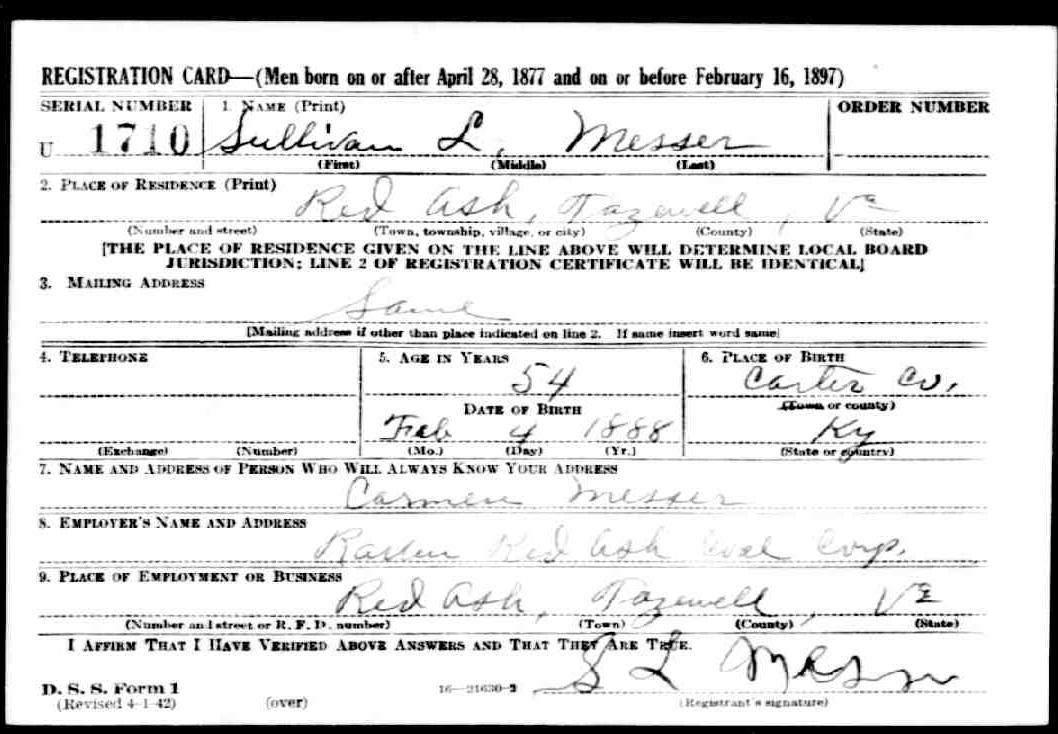 REGISTRATION CARD—(Men born on or after April 28, 1877 and on or before February 16, 1897)
SERIAL NUMBER 1. NAME (Print) ORDER NUMBER
U 1710 Sullivan L. Messer
(First) (Middle) (Last)
2. PLACE OF RESIDENCE (Print)
Red Ash, Tazewell, Va
(Number and street) (Town, township, village, or city) (County) (State)
[THE PLACE OF RESIDENCE GIVEN ON THE LINE ABOVE WILL DETERMINE LOCAL BOARD
JURISDICTION; LINE 2 OF REGISTRATION CERTIFICATE WILL BE IDENTICAL]
3. MAILING ADDRESS
Same
[Mailing address if other than place indicated on line 2. If same insert word same]
4. TELEPHONE 5. AGE IN YEARS 6. PLACE OF BIRTH
54 Carter Co.
DATE OF BIRTH (Town or county)
Feb 4 1888 Ky
(Exchange) (Number) (Mo.) (Day) (Yr.) (State or country)
7. NAME AND ADDRESS OF PERSON WHO WILL ALWAYS KNOW YOUR ADDRESS
Carmen Messer
8. EMPLOYER'S NAME AND ADDRESS
Red Ash Coal Corp.
9. PLACE OF EMPLOYMENT OR BUSINESS
Red Ash, Tazewell, Va
(Number and street or R. F. D. number) (Town) (County) (State)
I AFFIRM THAT I HAVE VERIFIED ABOVE ANSWERS AND THAT THEY ARE TRUE.
S L Messer
D. S. S. Form 1 16—21630-2
(Revised 4-1-42) (over) (Registrant's signature)